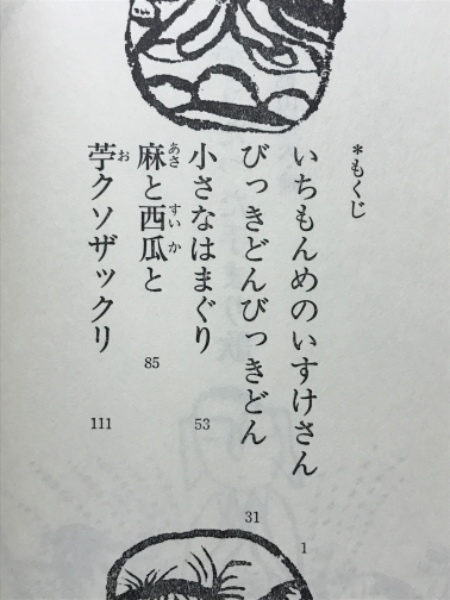 *もくじ
いちもんめのいすけさん 1
びっきどんびっきどん 31
小さなはまぐり 53
麻と西瓜と 85
苧クソザックリ 111